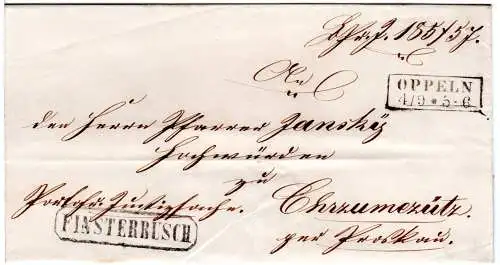 185/57.
An
OPPELN
4/9 * 5-6
den Herrn Pfarrer Jansky
Hochwürden
zu
Portofr. Justizsache. Chrzumczütz.
FINSTERBUSCH
per Proskau.